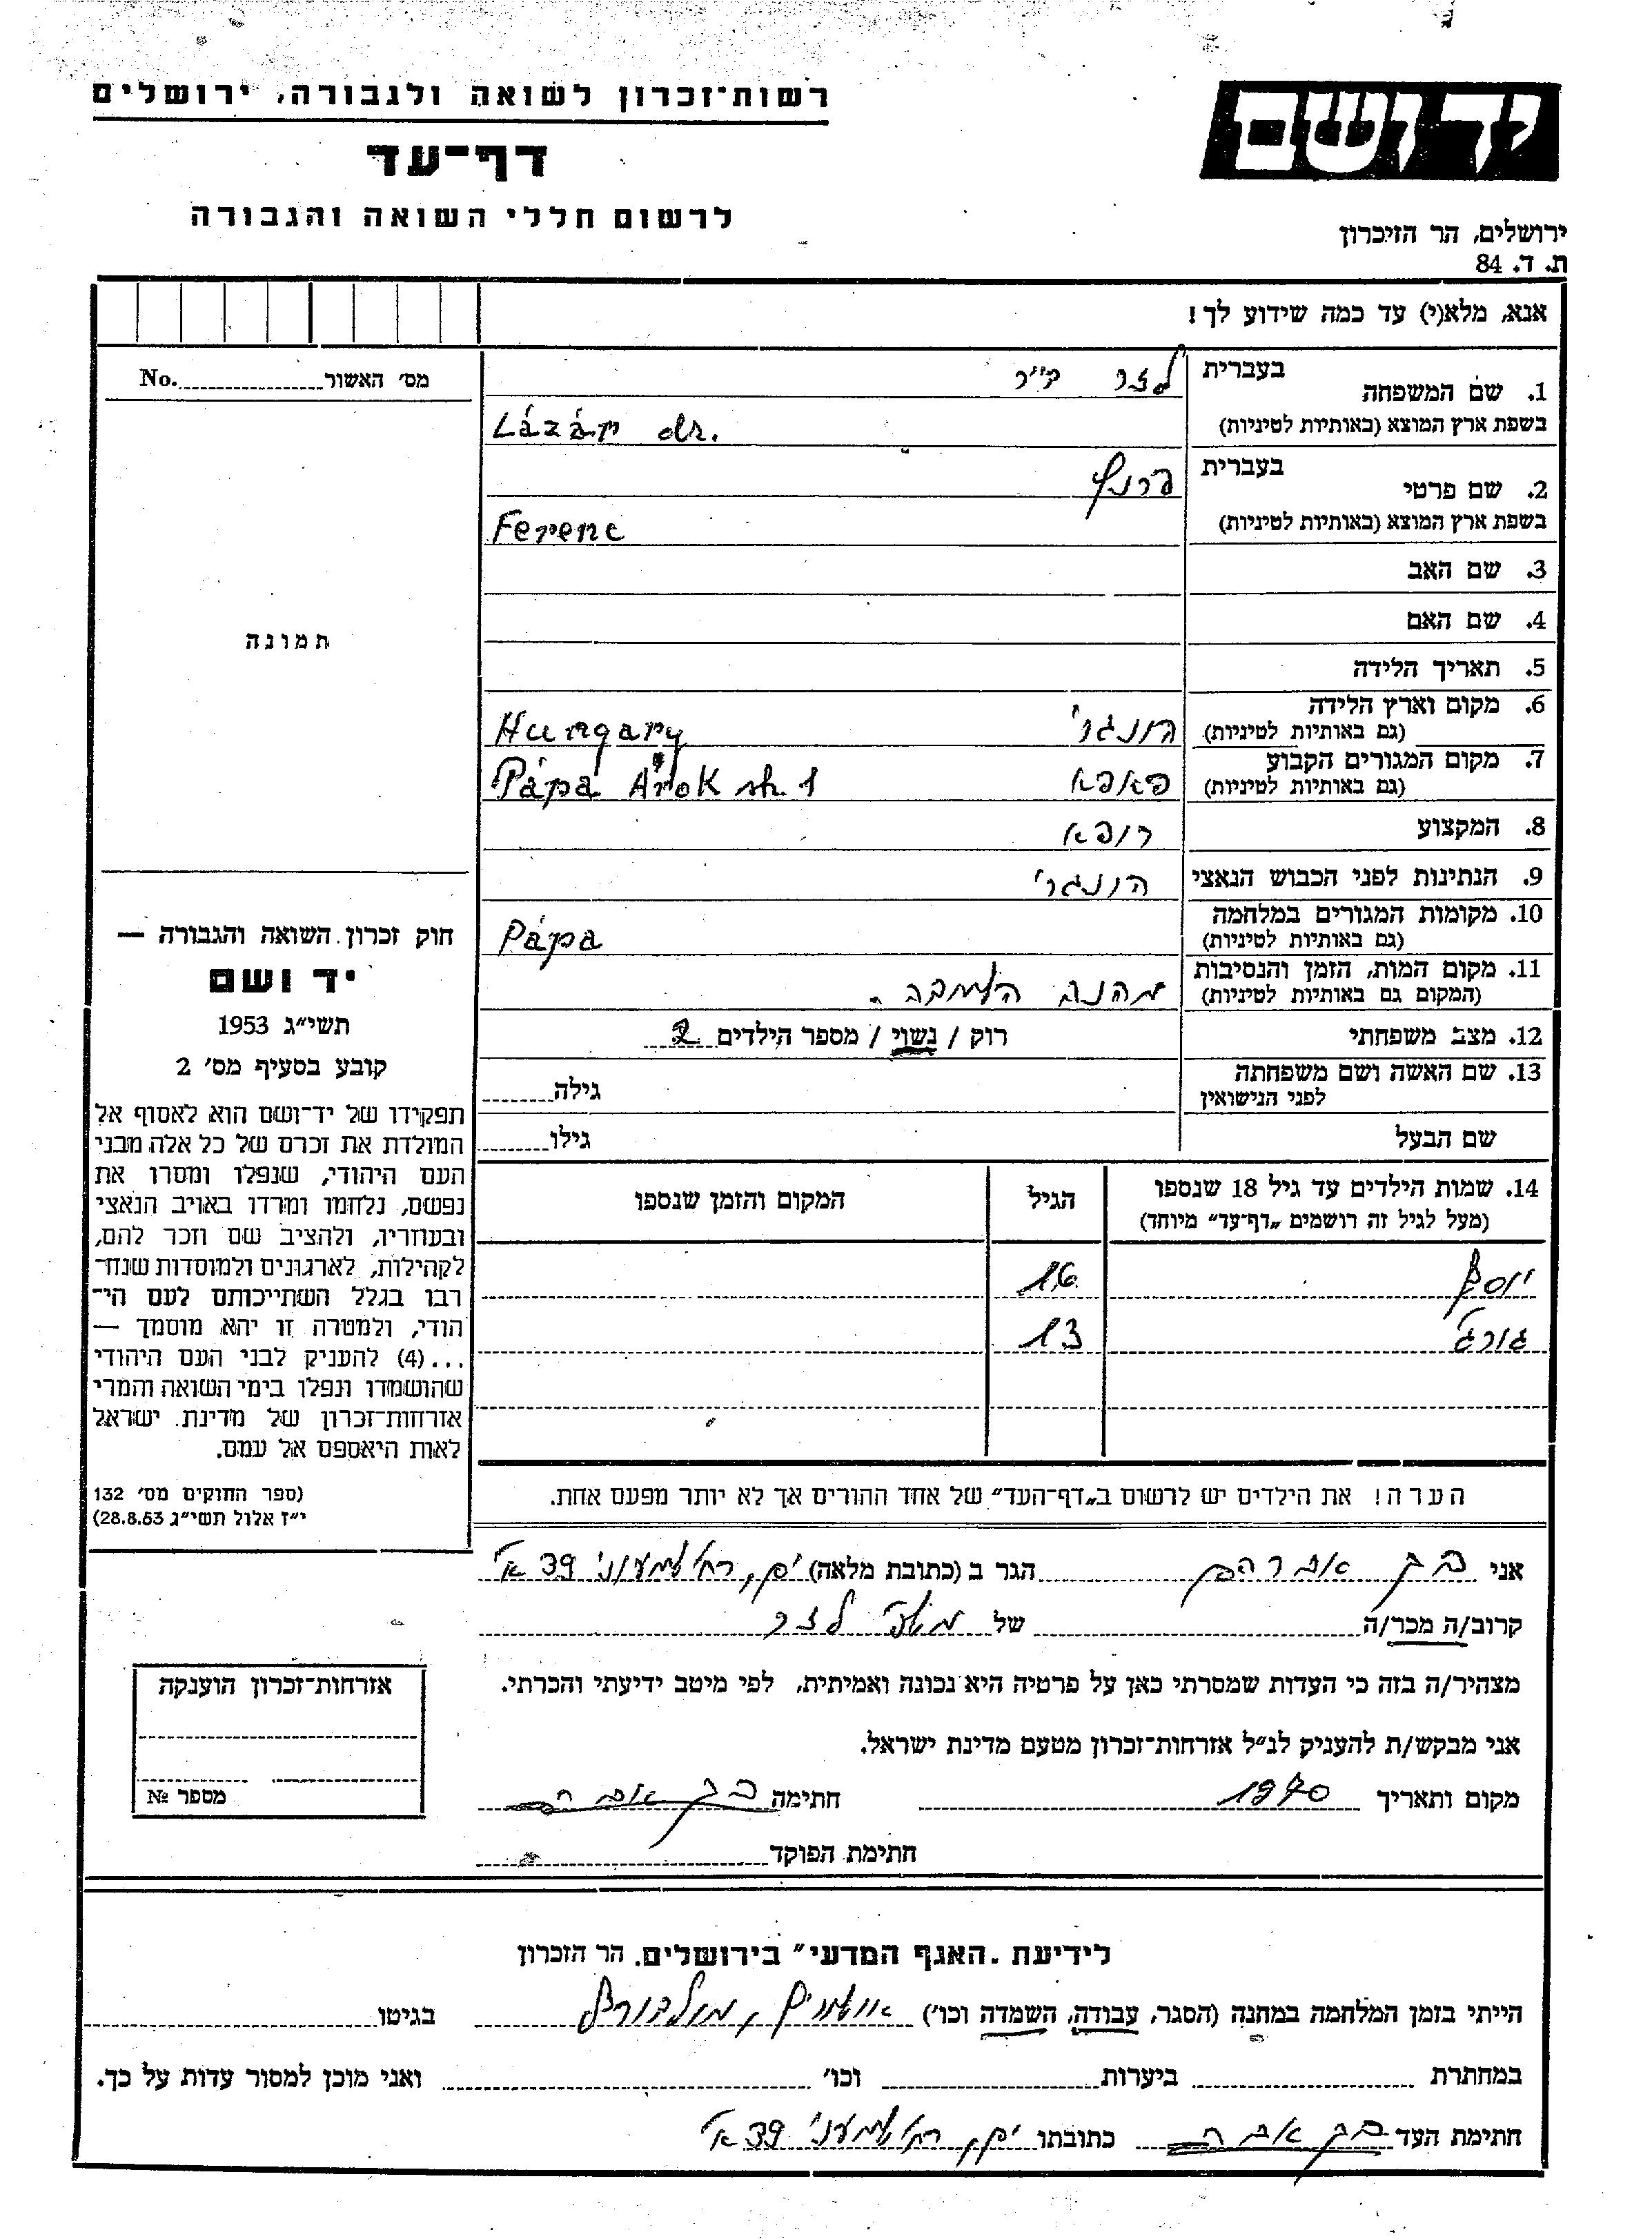 רשות־זכרון לשואה ולגבורה, ירושלים
דף־עד
לרשום חללי השואה והגבורה
יד ושם
ירושלים, הר הזיכרון
ת. ד. 84
אנא, מלא(י) עד כמה שידוע לך!
1. שם המשפחה בעברית לזר ד״ר
בשפת ארץ המוצא (באותיות לטיניות) Lázár dr.
2. שם פרטי בעברית פרנץ
בשפת ארץ המוצא (באותיות לטיניות) Ferenc
3. שם האב
4. שם האם
5. תאריך הלידה
6. מקום וארץ הלידה (גם באותיות לטיניות) הונגרי Hungary
7. מקום המגורים הקבוע (גם באותיות לטיניות) פאפא Pápa Árok str. 1
8. המקצוע רופא
9. הנתינות לפני הכבוש הנאצי הונגרי
10. מקומות המגורים במלחמה (גם באותיות לטיניות) Pápa
11. מקום המות, הזמן והנסיבות (המקום גם באותיות לטיניות) מהנה
12. מצב משפחתי רוק / נשוי / מספר הילדים 2
13. שם האשה ושם משפחתה לפני הנישואין גילה
שם הבעל גילו
14. שמות הילדים עד גיל 18 שנספו הגיל המקום והזמן שנספו
(מעל לגיל זה רושמים „דף־עד״ מיוחד)
יוסף 16
גורג׳ 13
הערה! את הילדים יש לרשום ב„דף־העד״ של אחד ההורים אך לא יותר מפעם אחת.
מס׳ האשור No.
תמונה
חוק זכרון השואה והגבורה —
יד ושם
תשי״ג 1953
קובע בסעיף מס׳ 2
תפקידו של יד־ושם הוא לאסוף אל
המולדת את זכרם של כל אלה מבני
העם היהודי, שנפלו ומסרו את
נפשם, נלחמו ומרדו באויב הנאצי
ובעוזריו, ולהציב שם וזכר להם,
לקהילות, לארגונים ולמוסדות שנח־
רבו בגלל השתייכותם לעם הי־
הודי, ולמטרה זו יהא מוסמך —
...(4) להעניק לבני העם היהודי
שהושמדו ונפלו בימי השואה והמרי
אזרחות־זכרון של מדינת ישראל
לאות היאספם אל עמם.
(ספר החוקים מס׳ 132
י״ז אלול תשי״ג 28.8.53)
אני בן אברהם הגר ב (כתובת מלאה) 39 א׳
קרוב/ה מכר/ה של לזר
מצהיר/ה בזה כי העדות שמסרתי כאן על פרטיה היא נכונה ואמיתית, לפי מיטב ידיעתי והכרתי.
אני מבקש/ת להעניק לנ״ל אזרחות־זכרון מטעם מדינת ישראל.
מקום ותאריך 1970 חתימה
חתימת הפוקד
אזרחות־זכרון הוענקה
מספר №
לידיעת „האגף המדעי״ בירושלים, הר הזכרון
הייתי בזמן המלחמה במחנה (הסגר, עבודה, השמדה וכו׳) אושוויץ, מולדורף בגיטו
במחתרת ביערות וכו׳ ואני מוכן למסור עדות על כך.
חתימת העד כתובתו 39 א׳